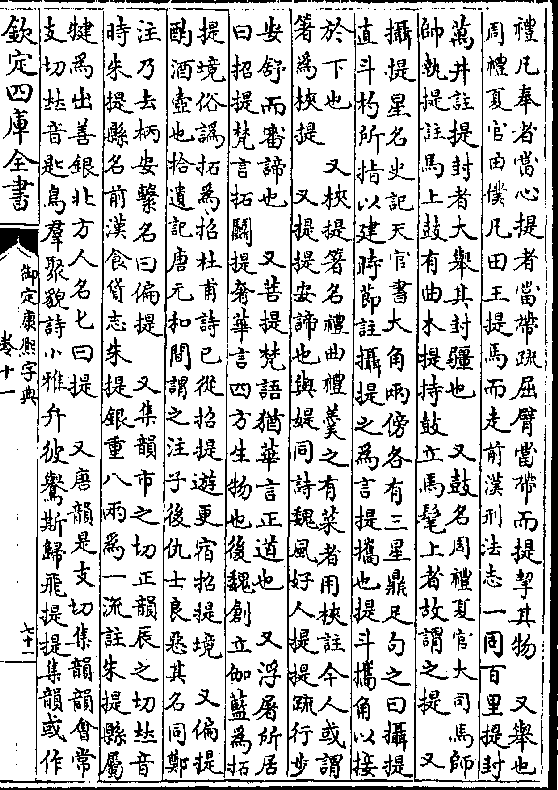 禮凡奉者當心提者當帶疏屈臂當帶而提挈其物　又舉也
周禮夏官田僕凡田王提馬而走前漢刑法志一同百里提封
萬井註提封者大舉其封疆也　又鼓名周禮夏官大司馬師
帥執提註馬上鼓有曲木提持鼓立馬髦上者故謂之提　又
攝提星名史記天官書大角兩傍各有三星鼎足句之曰攝提
直斗杓所指以建時節註攝提之為言提攜也提斗攜角以接
於下也　又梜提箸名禮曲禮羹之有菜者用梜註今人或謂
箸為梜提　又提提安諦也與媞同詩魏風好人提提疏行步
安舒而審諦也　又菩提梵語猶華言正道也　又浮屠所居
曰招提梵言拓鬭提奢華言四方生物也後魏創立伽藍為拓
提境俗譌拓為招杜甫詩已從招提遊更宿招提境　又偏提
酌酒壺也拾遺記唐元和間謂之注子後仇士良惡其名同鄭
注乃去柄安繫名曰偏提　又集韻市之切正韻辰之切𠀤音
時朱提縣名前漢食貨志朱提銀重八兩為一流註朱提縣屬
犍為出善銀北方人名匕曰提　又唐韻是支切集韻韻會常
支切𠀤音匙鳥羣聚貌詩小雅弁彼鸒斯歸飛提提集韻或作
欽定四庫全書
御定康熙字典
卷十一